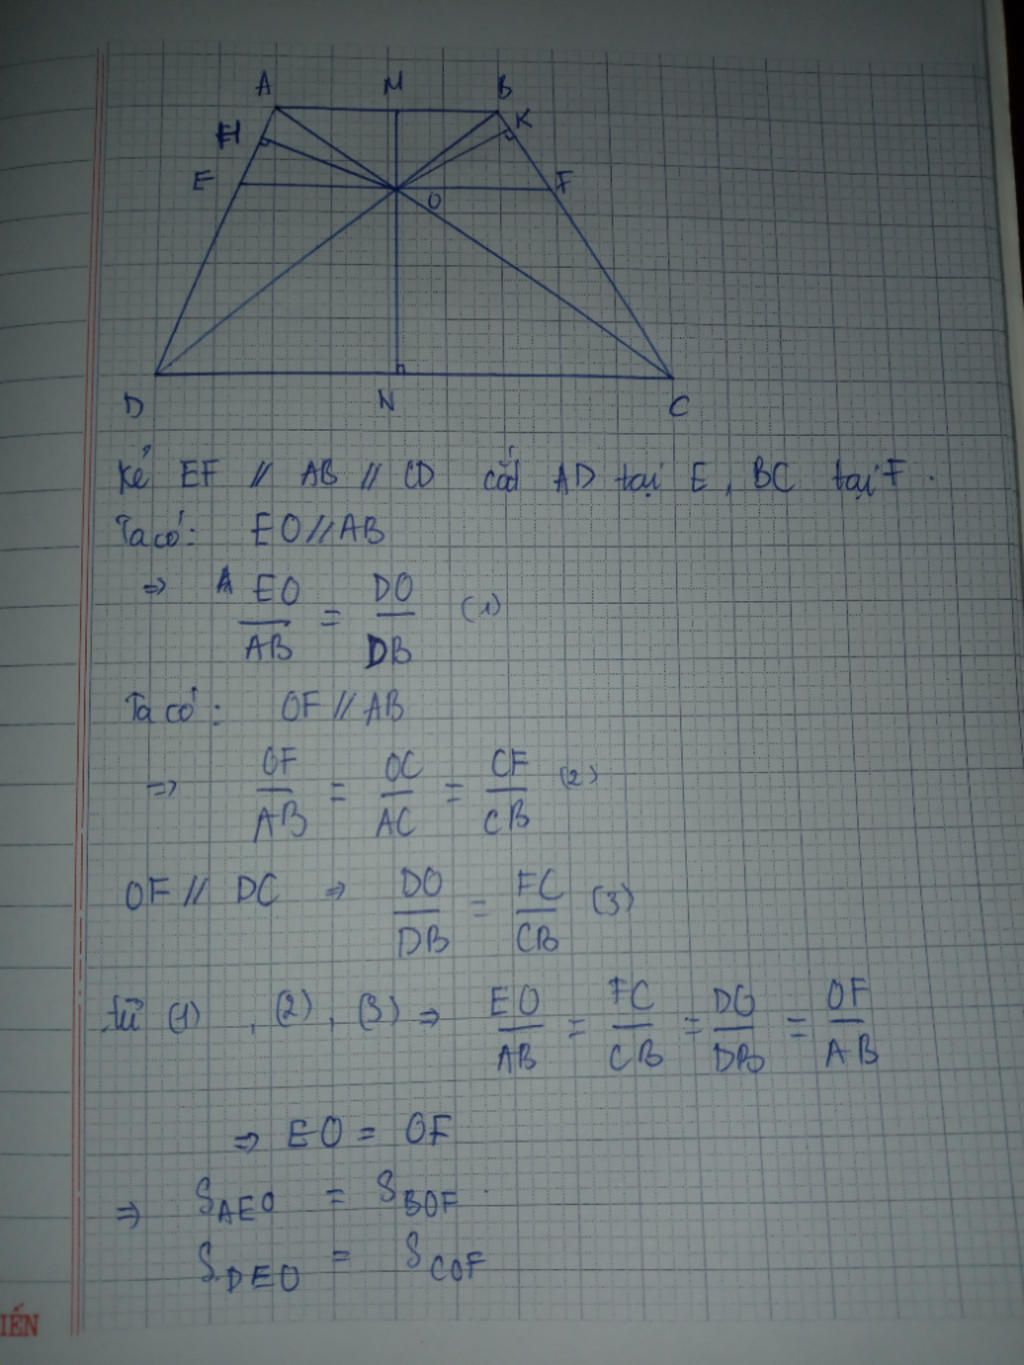 A M B
H K
E F
O
D N C
Kẻ EF // AB // CD cắt AD tại E, BC tại F.
Ta có: EO // AB
⇒ EO/AB = DO/DB (1)
Ta có: OF // AB
⇒ OF/AB = OC/AC = CF/CB (2)
OF // DC ⇒ DO/DB = FC/CB (3)
từ (1), (2), (3) ⇒ EO/AB = FC/CB = DO/DB = OF/AB
⇒ EO = OF
⇒ S_AEO = S_BOF
S_DEO = S_COF
IẾN